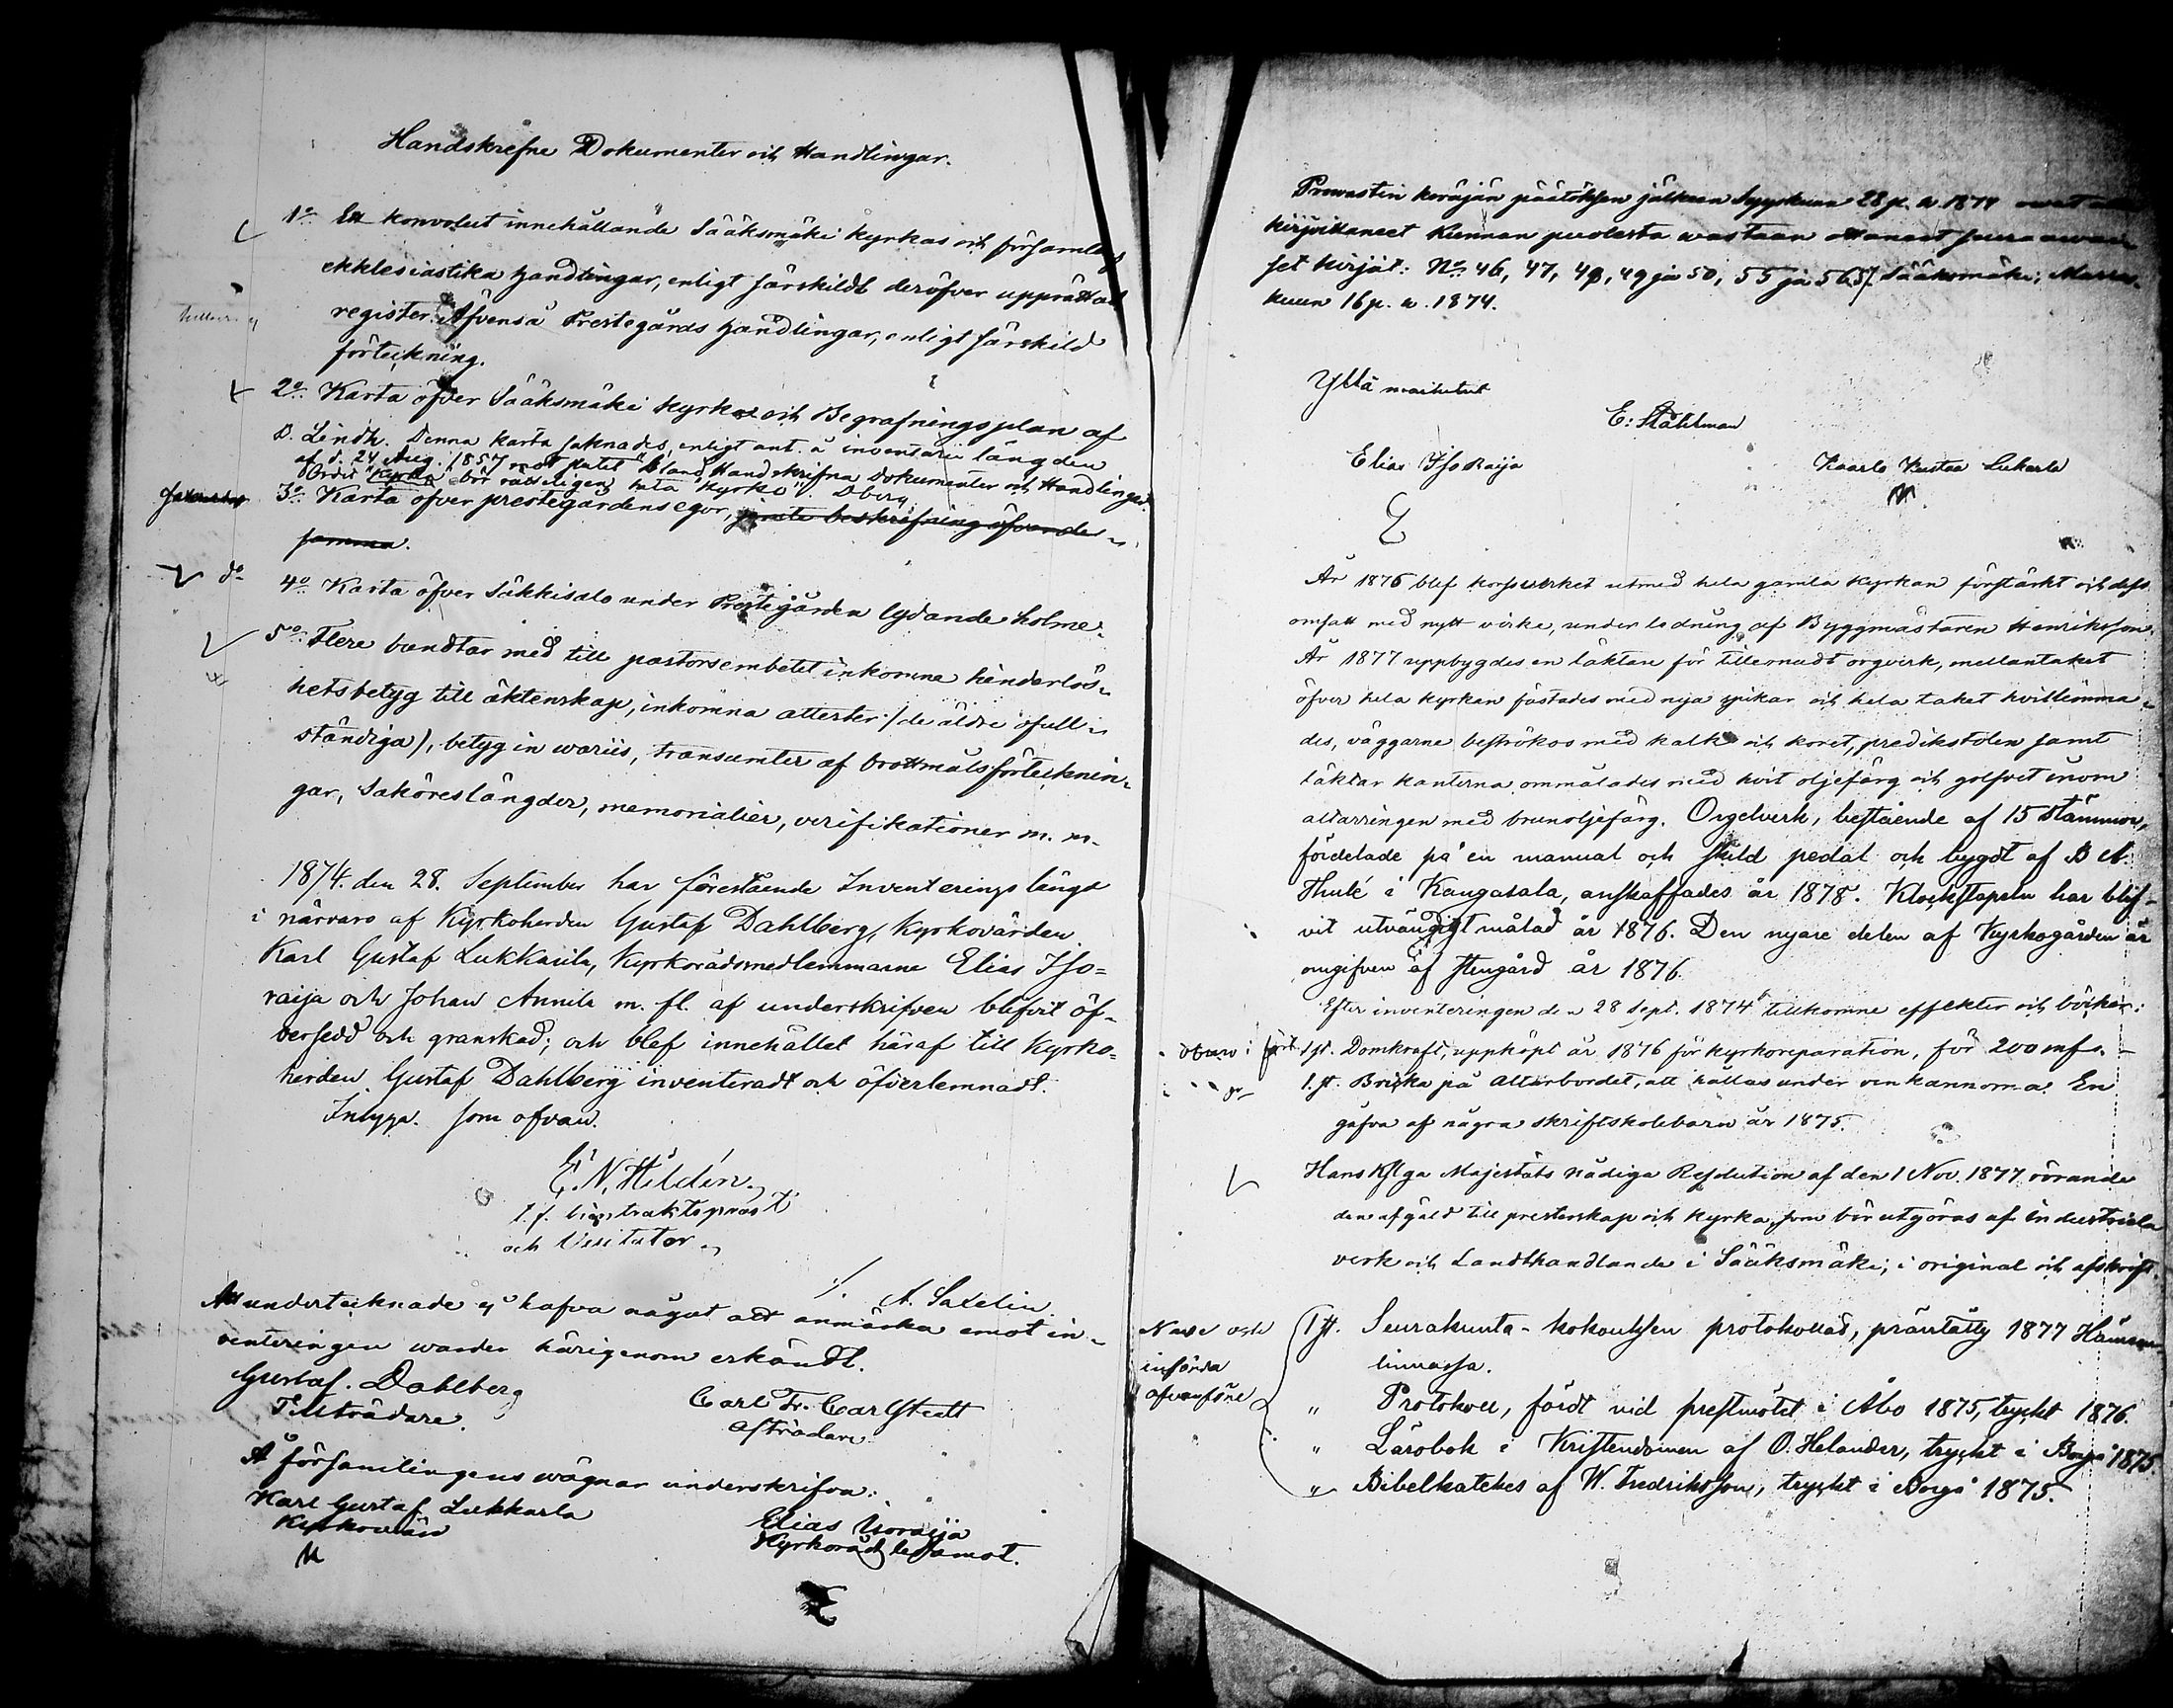 Handskrefne Dokumenter och Handlingar.
1o Ett konvolut innehållande Sääksmäki kyrkas och församlings
ekklesiastika handlingar, enligt särskildt deröfver upprättadt
register. Äfvenså Prestegårds handlingar, enligt särskild
förteckning.
2o Karta öfver Sääksmäki Kyrka och Begrafningsplan af
D. Lindh. Denna karta saknades, enligt ant. å inventarielängden
af d. 24 Aug. 1857 bland Handskrifna Dokumenter och Handlingar.
Ordet "Kyrka" bör rätteligen heta "Kyrko". Dberg
Saknades
3o Karta öfver prestegårdens egor, jemte beskrifning öfver den-
samma.
do
4o Karta öfver Säkkisalo under Prestegården lydande holme.
5o Flere bundtar med till pastorsembetet inkomne hinderlös-
hetsbetyg till äktenskap, inkomna attester (de äldre ofull-
ständiga), betyg in variis, transumter af brottmålsförtecknin-
gar, Saköreslängder, memorialier, verifikationer m. m.
1874. den 28. September har förestående Inventerings längd
i närvaro af Kyrkoherden Gustaf Dahlberg, Kyrkovärden
Karl Gustaf Lukkarila, Kyrkorådsmedlemmarne Elias Iso=
raija och Johan Annila m. fl. af underskrifven blifvit öf-
versedd och granskad; och blef innehållet häraf till Kyrko=
herden Gustaf Dahlberg inventeradt och öfverlemnadt.
Intygar som ofvan.
E. N. Hildén
t. f. kontraktsprost
och Visitator.
A. Saxelin
Att undertecknade ej hafva något att anmärka emot in-
venteringen warder härigenom erkändt.
Gustaf. Dahlberg
Tillträdare.
Carl Fr. Carlstedt
afträdare
Å församlingens wägnar underskrifva:
Karl Gustaf Lukkarla
Kyrkovärd
Elias Isoraija
Kyrkoråds ledamot.
Prowastin käräjän päätöksen jälkeen Syyskuun 28 p. w. 1874 owat
kirjoittaneet Kunnan puolesta wastaan ottaneet seuraawai-
set kirjat: No 46, 47, 48, 49 ja 50, 55 ja 56. Sääksmäki, Marras-
kuun 16 p. w. 1874.
Yllä mainitut
E: Ståhlman
Elias Iso Raija
Kaarlo Kustaa Lukarla
År 1876 blef korsverket utmed hela gamla Kyrkan förstärkt och dess
omfatt med nytt virke, under ledning af Byggmästaren Henriksson.
År 1877 uppbygdes en läktare för tillernadt orgverk, mellantaket
öfver hela kyrkan fästades med nya spikar och hela taket hvitlimma-
des, väggarne beströkos med kalk och koret, predikstolen samt
läktar kanterna ommålades med hvit oljefärg och golfvet inom
altarringen med brun oljefärg. Orgelverk, bestående af 15 stämmor,
fördelade på en manual och skild pedal och bygdt af B A.
Thulé i Kangasala, anskaffades år 1878. Klockstapeln har blif-
vit utvändigt målad år 1876. Den nyare delen af Kyrkogården är
omgifven af stengård år 1876.
Efter inventeringen den 28 Sept. 1874 tillkomne effekter och böcker:
1 st. Domkraft, upphöpt år 1876 för kyrkoreparation, för 200 mfs.
1. st. Bricka på Altarbordet, att hållas under vinkannorna. En
gåfva af några skriftskolebarn år 1875.
Hans Kjlga Majestäts nådiga Resolution af den 1 Nov. 1877 rörande
den afgäld till presterskap och kyrka, som bör utgöras af industriela
verk och Landthandlande i Sääksmäki; i original och afskrift.
N
införda
ofvanföre
1 st. Seurakunta-kokouksen protokollat, präntätty 1877 Hämeen-
linnassa.
" Protokoll, fördt vid prestmötet i Åbo 1875, tryckt 1876.
" Lärobok i Kristendomen af O. Helander, tryckt i Borgå 1875.
" Bibelkatekes af W. Fredriksson, tryckt i Borgå 1875.